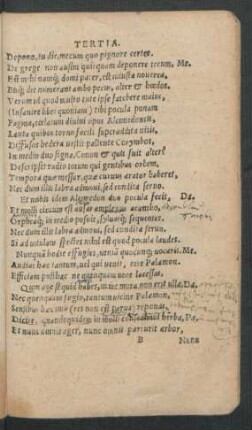 TERTIA.
Depono, tu dic, mecum quo pignore certes.
De grege non ausim quicquam deponere tecum, Me.
Est mihi namq; domi pater, est iniusta nouerca,
Bisq; die numerant ambo pecus, alter & hœdos.
Verum id quod multo tute ipse fatebere maius,
(Insanire libet quoniam) tibi pocula ponam
Fagina, cælatum diuini opus Alcimedontis,
Lenta quibus torno facili superaddita uitis,
Diffusos hedera uestit pallente Corymbos,
In medio duo signa, Conon & quis fuit alter?
Descripsit radio totum qui gentibus orbem,
Tempora quæ messor, quæ curuus arator haberet,
Nec dum illis labra admoui, sed condita seruo.
Et nobis idem Alcimedon duo pocula fecit, Da.
Et molli circum est ansas amplexus acantho,
Orpheaq; in medio posuit, syluasq; sequentes.
Nec dum illis labra admoui, sed condita seruo.
Si ad uitulam spectes nihil est quod pocula laudes.
Nunquā hodie effugies, ueniā quocunq; uocaris. Me.
Audiat hæc tantum, uel qui uenit, ecce Palæmon.
Efficiam posthac ne quenquam uoce lacessas.
Quin age si quid habes, in me mora non erit ulla, Da.
Nec quenquam fugio, tantum uicine Palæmon,
Sensibus hæc imis (res non est parua) reponas.
Dicite, quandoquidem in molli consedimus herba, Pa.
Et nunc omnis ager, nunc omnis parturit arbor,
B Nunc